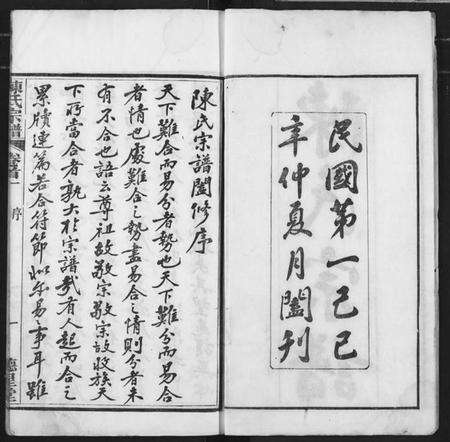 民國第一己巳
年仲夏月闔刊
陳氏宗譜闔修序
天下難合而易分者勢也天下難分而易合
者情也處難合之勢盡易合之情則分者未
有不合也語云尊祖故敬宗敬宗故收族天
下所當合者孰大於宗譜哉有人起而合之
累牘連篇若合符節似亦易事耳雖
陳氏宗譜 卷首一 序 一 德星堂